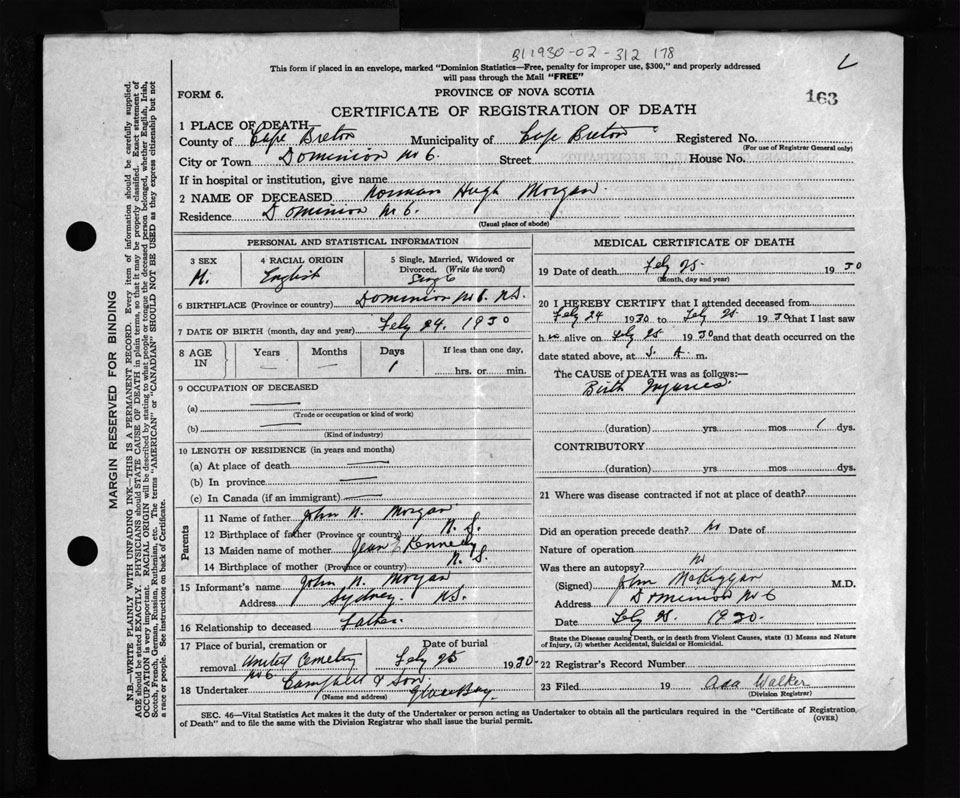 B1 1930-02-312 178
This form if placed in an envelope, marked "Dominion Statistics—Free, penalty for improper use, $300," and properly addressed
will pass through the Mail "FREE"
FORM 6.
PROVINCE OF NOVA SCOTIA
163
CERTIFICATE OF REGISTRATION OF DEATH
1 PLACE OF DEATH
County of Cape Breton Municipality of Cape Breton Registered No.
(For use of Registrar General only)
City or Town Dominion No 6. Street House No.
If in hospital or institution, give name
2 NAME OF DECEASED Norman Hugh Morgan
Residence Dominion No 6.
(Usual place of abode)
PERSONAL AND STATISTICAL INFORMATION
3 SEX
M.
4 RACIAL ORIGIN
English
5 Single, Married, Widowed or
Divorced. (Write the word)
Single
6 BIRTHPLACE (Province or country) Dominion No 6. N.S.
7 DATE OF BIRTH (month, day and year) Feby 24. 1930
8 AGE
IN
Years
—
Months
—
Days
1
If less than one day,
hrs. or min.
9 OCCUPATION OF DECEASED
(a) —
(Trade or occupation or kind of work)
(b) —
(Kind of industry)
10 LENGTH OF RESIDENCE (in years and months)
(a) At place of death —
(b) In province —
(c) In Canada (if an immigrant) —
Parents
11 Name of father John N. Morgan
12 Birthplace of father (Province or country) N. S.
13 Maiden name of mother Jean Kennedy
14 Birthplace of mother (Province or country) N. S.
15 Informant's name John N. Morgan
Address Sydney. N.S.
16 Relationship to deceased Father.
17 Place of burial, cremation or
removal United Cemetery
No 6.
Date of burial
Feby 25 1930
18 Undertaker Campbell & Son.
(Name and address) Glace Bay.
MEDICAL CERTIFICATE OF DEATH
19 Date of death Feby 25. 1930
(Month, day and year)
20 I HEREBY CERTIFY that I attended deceased from
Feby 24 1930 to Feby 25 1930 that I last saw
h alive on Feby 25 1930 and that death occurred on the
date stated above, at 5. A. m.
The CAUSE of DEATH was as follows:—
Birth Injuries.
(duration) yrs mos 1 dys.
CONTRIBUTORY
(duration) yrs mos dys.
21 Where was disease contracted if not at place of death?
Did an operation precede death? No Date of
Nature of operation
Was there an autopsy? No
(Signed) John McKiggan M.D.
Address Dominion No 6
Date Feby 25. 1930.
State the Disease causing Death, or in death from Violent Causes, state (1) Means and Nature
of Injury, (2) whether Accidental, Suicidal or Homicidal.
22 Registrar's Record Number
23 Filed 19 Ada Walker
(Division Registrar)
SEC. 46—Vital Statistics Act makes it the duty of the Undertaker or person acting as Undertaker to obtain all the particulars required in the "Certificate of Registration
of Death" and to file the same with the Division Registrar who shall issue the burial permit.
(OVER)
MARGIN RESERVED FOR BINDING
N.B.—WRITE PLAINLY WITH UNFADING INK—THIS IS A PERMANENT RECORD. Every item of information should be carefully supplied.
AGE should be stated EXACTLY. PHYSICIANS should STATE CAUSE OF DEATH in plain terms, so that it may be properly classified. Exact statement of
OCCUPATION is very important. RACIAL ORIGIN will be described by stating to what people or tongue the deceased person belonged, whether English, Irish,
Scotch, French, German, Russian, Ruthenian, etc. The terms "AMERICAN" or "CANADIAN" SHOULD NOT BE USED as they express citizenship but not
a race or people. See instructions on back of Certificate.